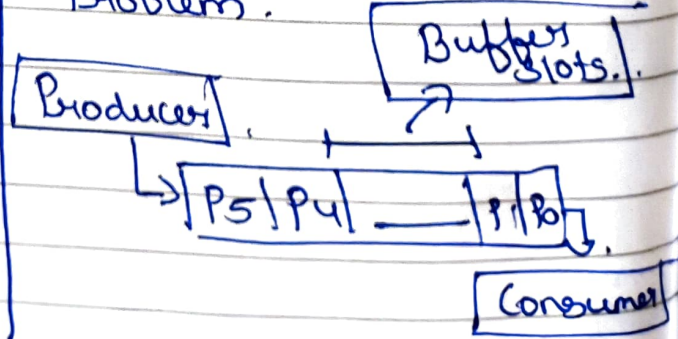 Problem.
Buffer
Slots.
Producer
P5 P4 P1 P0
Consumer